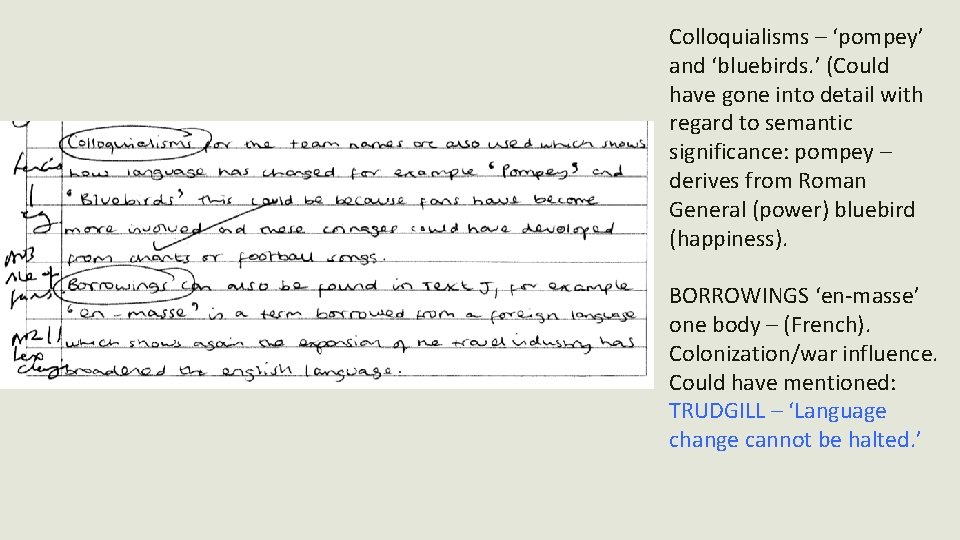 Colloquialisms for the team names are also used which shows
how language has changed for example 'Pompey' and
'Bluebirds' This could be because fans have become
more involved and these coinages could have developed
from chants or football songs.
Borrowings can also be found in Text J, for example
'en-masse' is a term borrowed from a foreign language
which shows again the expansion of the travel industry has
broadened the english language.
eg
AO3
role of
fans.
AO2
Lex
change
Colloquialisms – ‘pompey’
and ‘bluebirds. ’ (Could
have gone into detail with
regard to semantic
significance: pompey –
derives from Roman
General (power) bluebird
(happiness).
BORROWINGS ‘en-masse’
one body – (French).
Colonization/war influence.
Could have mentioned:
TRUDGILL – ‘Language
change cannot be halted. ’